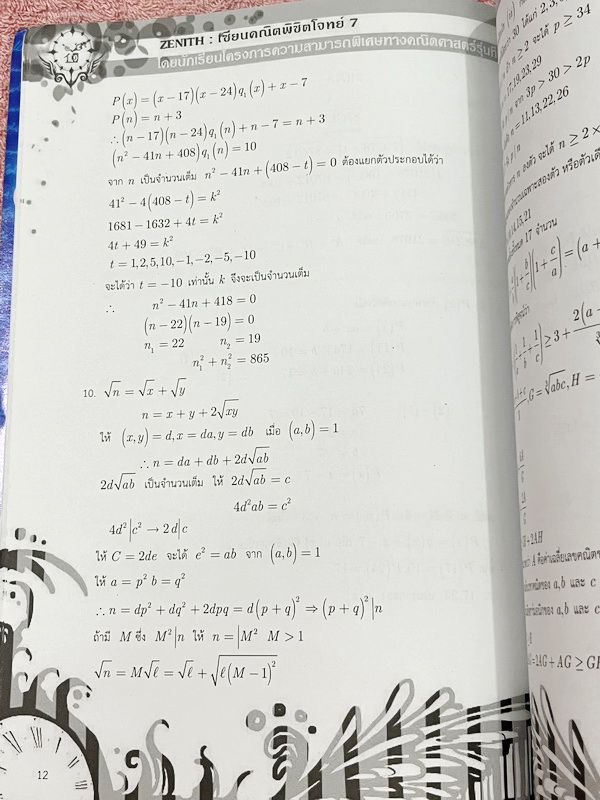 ZENITH : เซียนคณิตพิชิตโจทย์ 7
โดยนักเรียนโครงการความสามารถพิเศษทางคณิตศาสตร์รุ่นที่
P(x) = (x−17)(x−24)q₁(x) + x − 7
P(n) = n + 3
∴(n−17)(n−24)q₁(n) + n − 7 = n + 3
(n² − 41n + 408)q₁(n) = 10
จาก n เป็นจำนวนเต็ม n² − 41n + (408 − t) = 0 ต้องแยกตัวประกอบได้ว่า
41² − 4(408 − t) = k²
1681 − 1632 + 4t = k²
4t + 49 = k²
t = 1,2,5,10,−1,−2,−5,−10
จะได้ว่า t = −10 เท่านั้น k จึงจะเป็นจำนวนเต็ม
∴ n² − 41n + 418 = 0
(n − 22)(n − 19) = 0
n₁ = 22 n₂ = 19
n₁² + n₂² = 865
10. √n = √x + √y
n = x + y + 2√xy
ให้ (x,y) = d, x = da, y = db เมื่อ (a,b) = 1
∴ n = da + db + 2d√ab
2d√ab เป็นจำนวนเต็ม ให้ 2d√ab = c
4d²ab = c²
4d²|c² → 2d|c
ให้ C = 2de จะได้ e² = ab จาก (a,b) = 1
ให้ a = p² b = q²
∴ n = dp² + dq² + 2dpq = d(p + q)² ⇒ (p + q)²|n
ถ้ามี M ซึ่ง M²|n ให้ n = |M² M > 1
√n = M√ℓ = √ℓ + √ℓ(M − 1)²
12
จะได้ p ≥ 34
17,19,23,29
จาก 3p > 30 > 2p
= 11,13,22,26
ตัว จะได้ n ≥ 2 ×
14,15,21
17 จำนวน
(1 + c/a) = (a +
1/a + 1/b + 1/c) ≥ 3 + 2(a
, G = ∛abc, H =
+ 2AH
a, b และ c
a, b และ c
= 2AG + AG ≥ GH